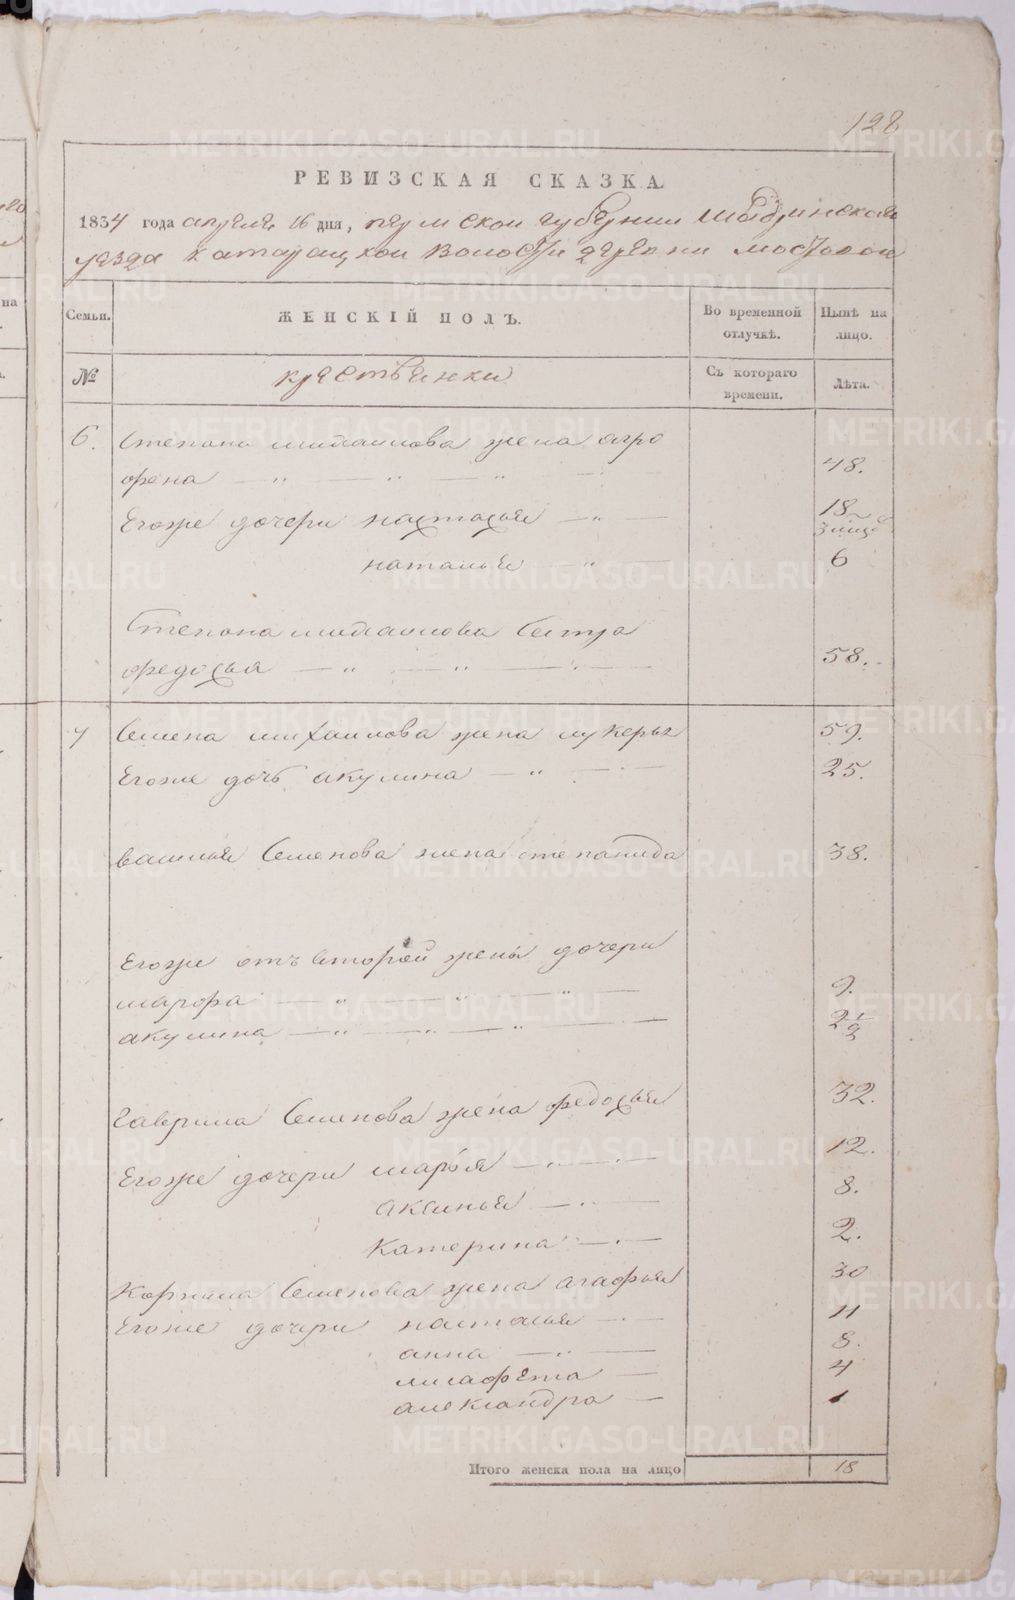 128
РЕВИЗСКАЯ СКАЗКА
1834 года апреля 16 дня, пермской губернии шадринскаго
уезда катарацкой волости деревни мостовой
Семьи. ЖЕНСКІЙ ПОЛЪ. Во временной отлучкѣ. Нынѣ на лицо.
№ крестьянки Съ котораго времени. Лѣта.
6. Степана михаилова жена агро
фена 48.
Егоже дочери настасья 18
наталья 6
Степана михаилова сестра
федосья 58.
7 Семена михаилова жена лукерья 59.
Егоже дочь акулина 25.
василья Семенова жена степанида 38.
Егоже отъ второй жены дочери
марфа 9.
акулина 2 1/2
Гаврила Семенова жена федосья 32.
Егоже дочери марья 12.
аксинья 8.
Катерина 2.
Корнила Семенова жена агафья 30
Егоже дочери настасья 11
анна 8.
лисафета 4
александра 1
Итого женска пола на лицо 18
METRIKI.GASO-URAL.RU